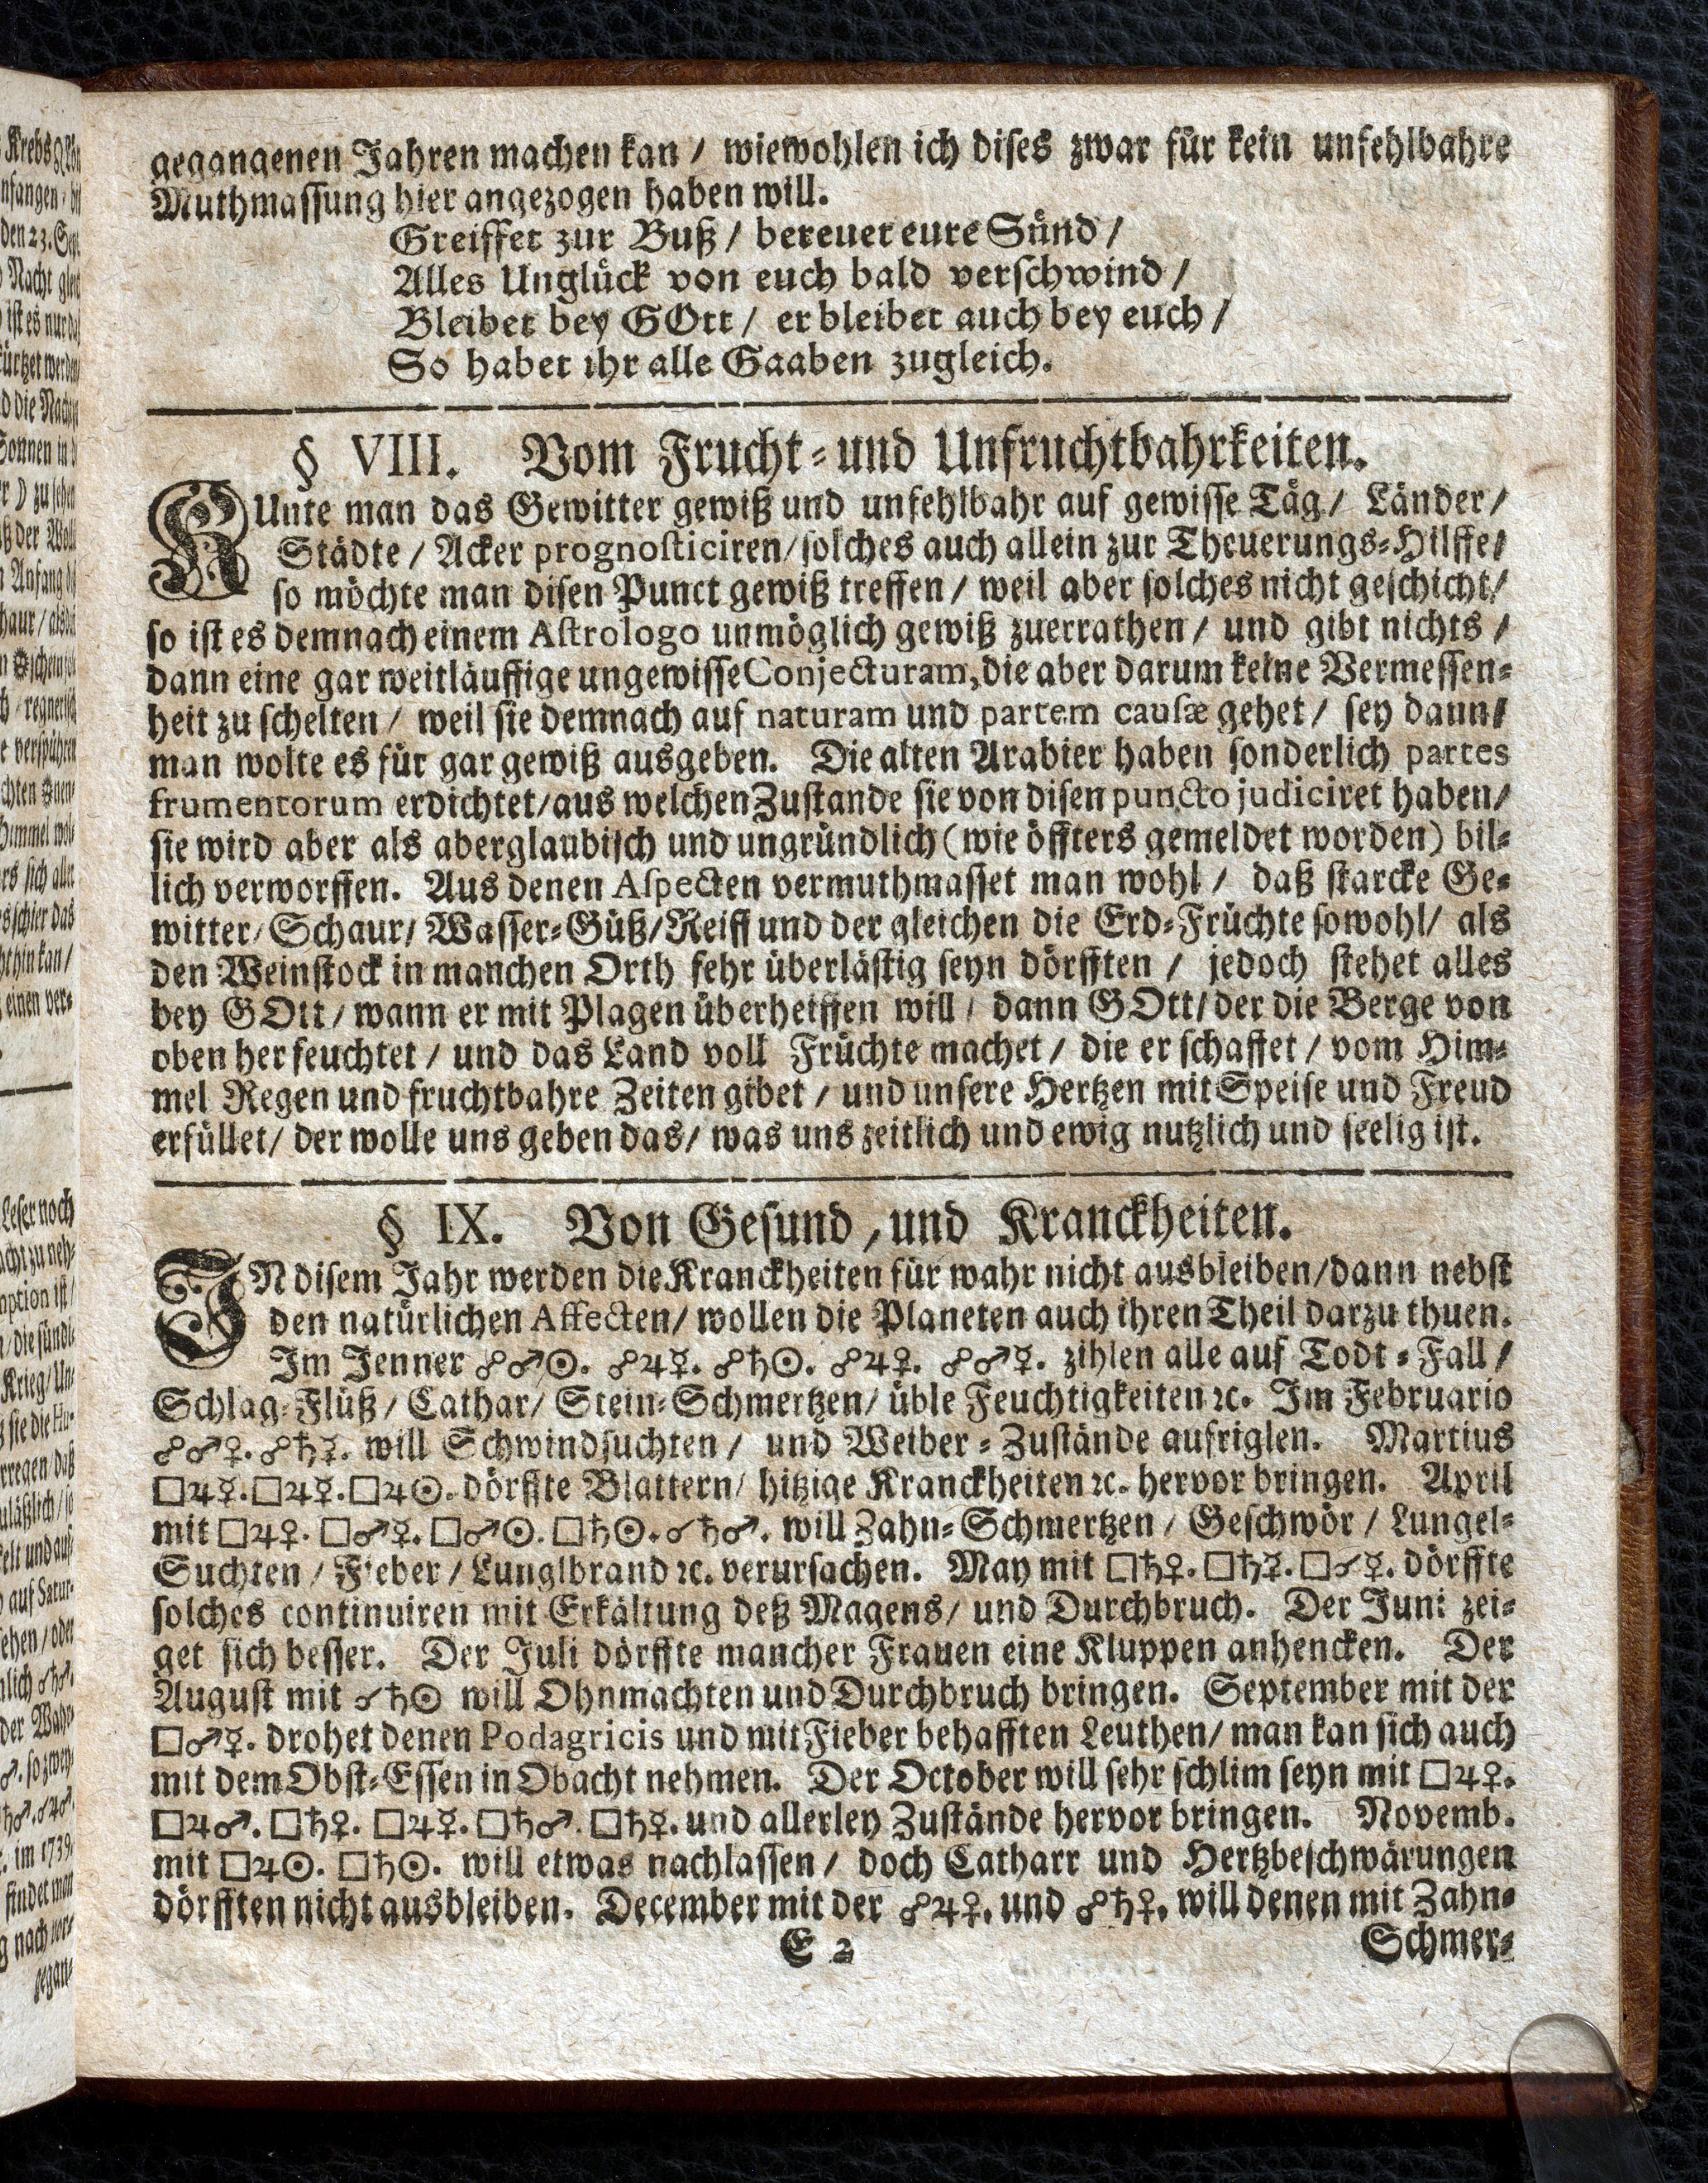 gegangenen Jahren machen kan / wiewohlen ich dises zwar für kein unfehlbahre
Muthmassung hier angezogen haben will.
Greiffet zur Buß / bereuet eure Sünd /
Alles Unglück von euch bald verschwind /
Bleibet bey GOtt / er bleibet auch bey euch /
So habet ihr alle Gaaben zugleich.
§ VIII. Vom Frucht- und Unfruchtbahrkeiten.
KUnte man das Gewitter gewiß und unfehlbahr auf gewisse Täg / Länder /
Städte / Acker prognosticiren / solches auch allein zur Theuerungs-Hilffe /
so möchte man disen Punct gewiß treffen / weil aber solches nicht geschicht /
so ist es demnach einem Astrologo unmöglich gewiß zuerrathen / und gibt nichts /
dann eine gar weitläuffige ungewisse Conjecturam, die aber darum keine Vermessen-
heit zu schelten / weil sie demnach auf naturam und partem causæ gehet / sey dann /
man wolte es für gar gewiß ausgeben. Die alten Arabier haben sonderlich partes
frumentorum erdichtet / aus welchen Zustande sie von disen puncto judiciret haben /
sie wird aber als aberglaubisch und ungründlich (wie öffters gemeldet worden) bil-
lich verworffen. Aus denen Aspecten vermuthmasset man wohl / daß starcke Ge-
witter / Schaur / Wasser-Güß / Reiff und der gleichen die Erd-Früchte sowohl / als
den Weinstock in manchen Orth sehr überlästig seyn dörfften / jedoch stehet alles
bey GOtt / wann er mit Plagen überheiffen will / dann GOtt / der die Berge von
oben her feuchtet / und das Land voll Früchte machet / die er schaffet / vom Him-
mel Regen und fruchtbahre Zeiten gibet / und unsere Hertzen mit Speise und Freud
erfüllet / der wolle uns geben das / was uns zeitlich und ewig nutzlich und seelig ist.
§ IX. Von Gesund, und Kranckheiten.
IN disem Jahr werden die Kranckheiten für wahr nicht ausbleiben / dann nebst
den natürlichen Affecten / wollen die Planeten auch ihren Theil darzu thuen.
Im Jenner ☍♂☉. ☍♃☿. ☍♄☉. ☍♃♀. ☍♂☿. zihlen alle auf Todt-Fall /
Schlag-Flüß / Cathar / Stein-Schmertzen / üble Feuchtigkeiten ꝛc. Im Februario
☍♂♀. ☍♄☿. will Schwindsuchten / und Weiber-Zustände aufriglen. Martius
□♃☿. □♃☿. □♃☉. dörffte Blattern / hitzige Kranckheiten ꝛc. hervor bringen. April
mit □♃♀. □♂☿. □♂☉. □♄☉. ☌♄♂. will Zahn-Schmertzen / Geschwör / Lungel-
Suchten / Fieber / Lunglbrand ꝛc. verursachen. May mit □♄♀. □♄☿. □☌☿. dörffte
solches continuiren mit Erkältung deß Magens / und Durchbruch. Der Juni zei-
get sich besser. Der Juli dörffte mancher Frauen eine Kluppen anhencken. Der
August mit ☌♄☉ will Ohnmachten und Durchbruch bringen. September mit der
□♂☿. drohet denen Podagricis und mit Fieber behafften Leuthen / man kan sich auch
mit dem Obst-Essen in Obacht nehmen. Der October will sehr schlim seyn mit □♃♀.
□♃♂. □♄♀. □♃☿. □♄♂. □♄☿. und allerley Zustände hervor bringen. Novemb.
mit □♃☉. □♄☉. will etwas nachlassen / doch Catharr und Hertzbeschwärungen
dörfften nicht ausbleiben. December mit der ☍♃♀. und ☍♄♀. will denen mit Zahn-
E 2 Schmer-